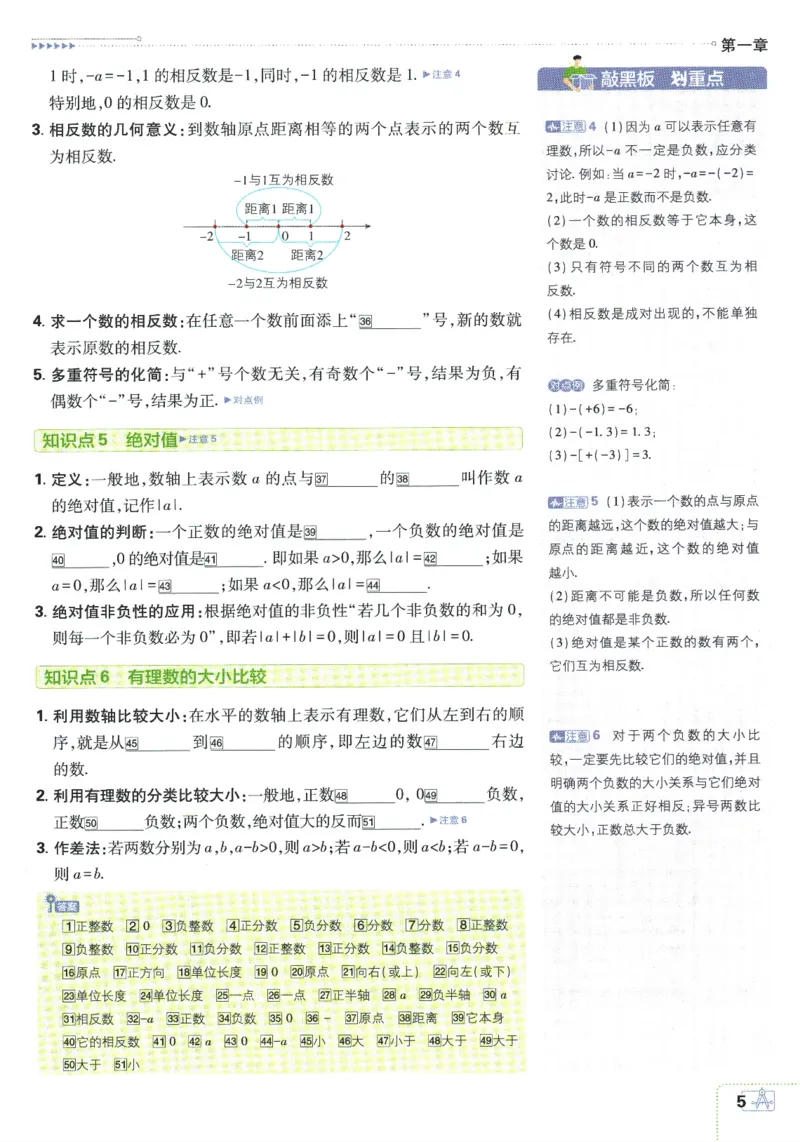 第一章
1时,-a=-1,1的相反数是-1,同时,-1的相反数是1. ▶注意4
特别地,0的相反数是0.
3. 相反数的几何意义:到数轴原点距离相等的两个点表示的两个数互
为相反数.
-1与1互为相反数
距离1 距离1
-2 -1 0 1 2
距离2 距离2
-2与2互为相反数
4. 求一个数的相反数:在任意一个数前面添上“36______”号,新的数就
表示原数的相反数.
5. 多重符号的化简:与“+”号个数无关,有奇数个“-”号,结果为负,有
偶数个“-”号,结果为正. ▶对点例
知识点5 绝对值▶注意5
1. 定义:一般地,数轴上表示数a的点与37______的38______叫作数a
的绝对值,记作|a|.
2. 绝对值的判断:一个正数的绝对值是39______,一个负数的绝对值是
40______,0的绝对值是41______.即如果a>0,那么|a|=42______;如果
a=0,那么|a|=43______;如果a<0,那么|a|=44______.
3. 绝对值非负性的应用:根据绝对值的非负性“若几个非负数的和为0,
则每一个非负数必为0”,即若|a|+|b|=0,则|a|=0且|b|=0.
知识点6 有理数的大小比较
1. 利用数轴比较大小:在水平的数轴上表示有理数,它们从左到右的顺
序,就是从45______到46______的顺序,即左边的数47______右边
的数.
2. 利用有理数的分类比较大小:一般地,正数48______0, 049______负数,
正数50______负数;两个负数,绝对值大的反而51______. ▶注意6
3. 作差法:若两数分别为a,b,a-b>0,则a>b;若a-b<0,则a<b;若a-b=0,
则a=b.
答案
1正整数 2 0 3负整数 4正分数 5负分数 6分数 7分数 8正整数
9负整数 10正分数 11负分数 12正整数 13正分数 14负整数 15负分数
16原点 17正方向 18单位长度 19 0 20原点 21向右(或上) 22向左(或下)
23单位长度 24单位长度 25一点 26一点 27正半轴 28 a 29负半轴 30 a
31相反数 32-a 33正数 34负数 35 0 36 - 37原点 38距离 39它本身
40它的相反数 41 0 42 a 43 0 44-a 45小 46大 47小于 48大于 49大于
50大于 51小
敲黑板 划重点
注意4 (1)因为a可以表示任意有
理数,所以-a不一定是负数,应分类
讨论.例如:当a=-2时,-a=-(-2)=
2,此时-a是正数而不是负数.
(2)一个数的相反数等于它本身,这
个数是0.
(3)只有符号不同的两个数互为相
反数.
(4)相反数是成对出现的,不能单独
存在.
对点例 多重符号化简:
(1)-(+6)=-6;
(2)-(-1.3)=1.3;
(3)-[+(-3)]=3.
注意5 (1)表示一个数的点与原点
的距离越远,这个数的绝对值越大;与
原点的距离越近,这个数的绝对值
越小.
(2)距离不可能是负数,所以任何数
的绝对值都是非负数.
(3)绝对值是某个正数的数有两个,
它们互为相反数.
注意6 对于两个负数的大小比
较,一定要先比较它们的绝对值,并且
明确两个负数的大小关系与它们绝对
值的大小关系正好相反;异号两数比
较大小,正数总大于负数.
5